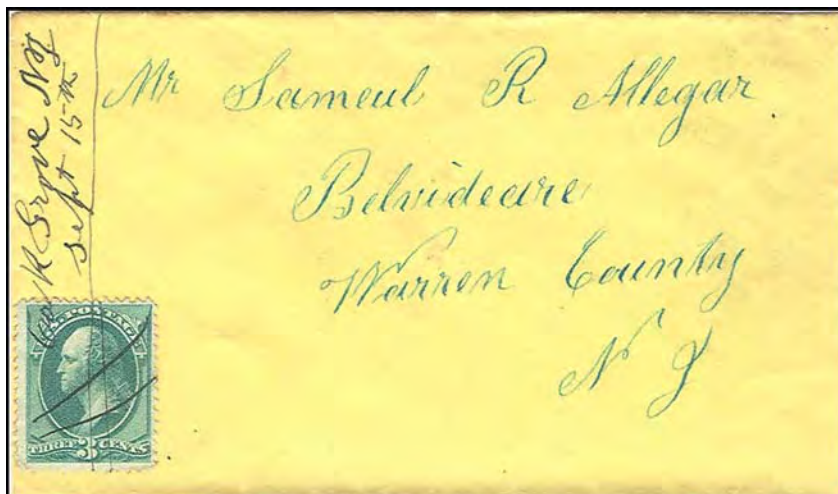 Oak Grove NJ
Sept 15th
Mr Sameul R Allegar
Belvideare
Warren County
N J
U.S. POSTAGE
THREE 3 CENTS